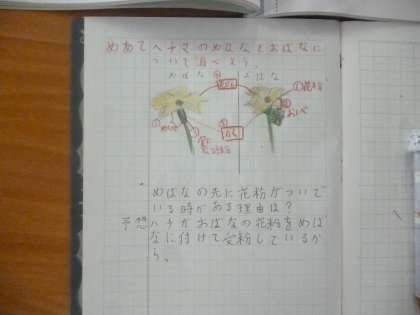 めあて ヘチマのめばなとおばなに
ついて調べよう。
めばな おばな
花びら
がく
めばなの先に花粉がついて
いる時がある理由は?
予想 ハチがおばなの花粉をめば
なに付けて受粉しているか
ら。